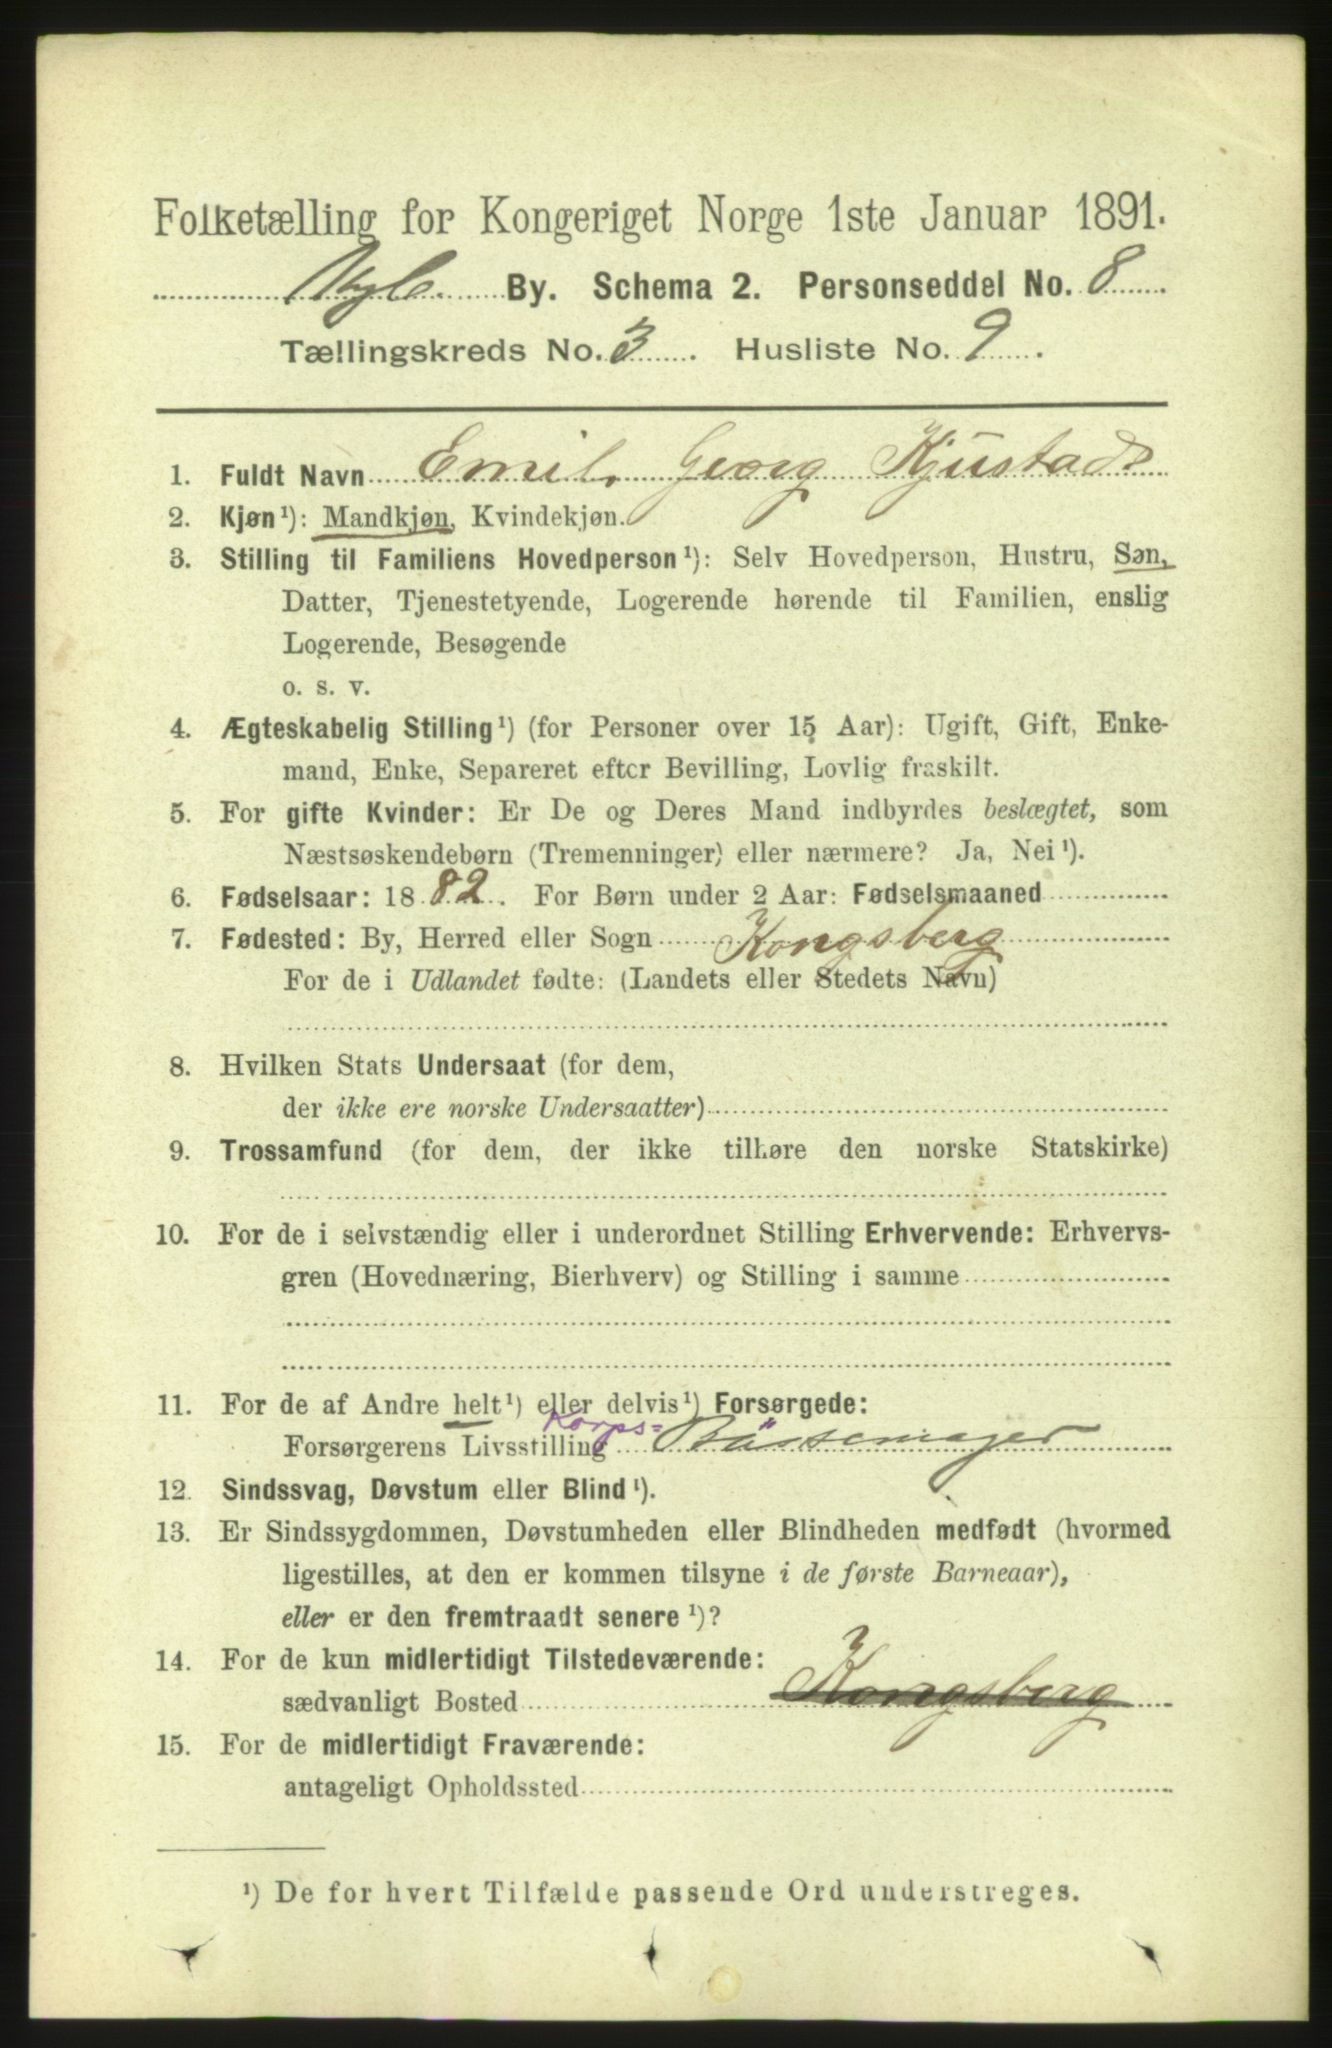 Folketælling for Kongeriget Norge 1ste Januar 1891.
By. Schema 2. Personseddel No. 8
Tællingskreds No. 3. Husliste No. 9.
1. Fuldt Navn Emil Georg Kjustad
2. Kjøn ¹): Mandkjøn, Kvindekjøn.
3. Stilling til Familiens Hovedperson ¹): Selv Hovedperson, Hustru, Søn,
Datter, Tjenestetyende, Logerende hørende til Familien, enslig
Logerende, Besøgende
o. s. v.
4. Ægteskabelig Stilling ¹) (for Personer over 15 Aar): Ugift, Gift, Enke-
mand, Enke, Separeret efter Bevilling, Lovlig fraskilt.
5. For gifte Kvinder: Er De og Deres Mand indbyrdes beslægtet, som
Næstsøskendebørn (Tremenninger) eller nærmere? Ja, Nei ¹).
6. Fødselsaar: 1882. For Børn under 2 Aar: Fødselsmaaned
7. Fødested: By, Herred eller Sogn Kongsberg
For de i Udlandet fødte: (Landets eller Stedets Navn)
8. Hvilken Stats Undersaat (for dem,
der ikke ere norske Undersaatter)
9. Trossamfund (for dem, der ikke tilhøre den norske Statskirke)
10. For de i selvstændig eller i underordnet Stilling Erhvervende: Erhvervs-
gren (Hovednæring, Bierhverv) og Stilling i samme
11. For de af Andre helt ¹) eller delvis ¹) Forsørgede:
Forsørgerens Livsstilling Korps- Bössemager
12. Sindssvag, Døvstum eller Blind ¹).
13. Er Sindssygdommen, Døvstumheden eller Blindheden medfødt (hvormed
ligestilles, at den er kommen tilsyne i de første Barneaar),
eller er den fremtraadt senere ¹)?
14. For de kun midlertidigt Tilstedeværende:
sædvanligt Bosted Kongsberg
15. For de midlertidigt Fraværende:
antageligt Opholdssted
¹) De for hvert Tilfælde passende Ord understreges.